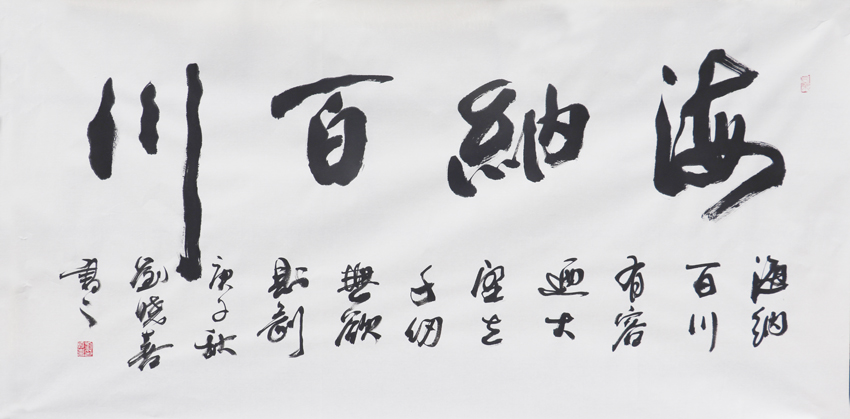 海納百川
海納
百川
有容
迺大
壁立
千仞
無欲
則剛
庚子秋
劉晓喜
書之